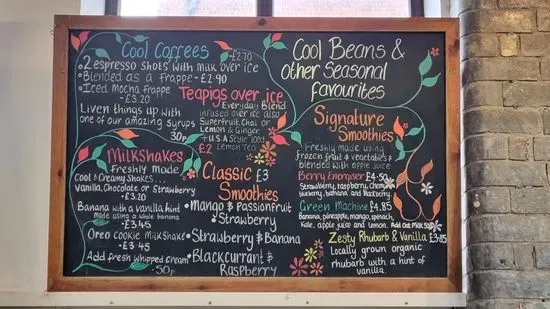 Cool Coffees
• 2 espresso shots with milk over ice £2.70
• Blended as a Frappe - £2.90
• Iced Mocha Frappe
- £3.20
Liven things up with
one of our amazing syrups
30p
Milkshakes
Freshly Made
Cool & Creamy Shakes...
Vanilla, Chocolate or Strawberry
- £3.20
Banana with a vanilla hint
Made using a whole banana
- £3.45
Oreo Cookie Milkshake
- £3.45
Add fresh whipped cream
- 50p
Teapigs over ice
Everyday Blend
infused over ice also
Superfruit, Chai or
Lemon & Ginger
+ U.S.A Style Iced
Lemon Tea
£2
Classic £3
Smoothies
• Mango & Passionfruit
& Strawberry
• Strawberry & Banana
• Blackcurrant &
Raspberry
Cool Beans &
other Seasonal
favourites
Signature
Smoothies
Freshly made using
frozen fruit & vegetables &
blended with apple juice
Berry Energiser £4.50
Strawberry, raspberry, Cherry,
blueberry, banana and blackberry
Green Machine £4.85
Banana, pineapple, mango, spinach,
Kale, apple juice and lemon. Add oat milk
Zesty Rhubarb & Vanilla £3.85
Locally grown organic
rhubarb with a hint of
vanilla.